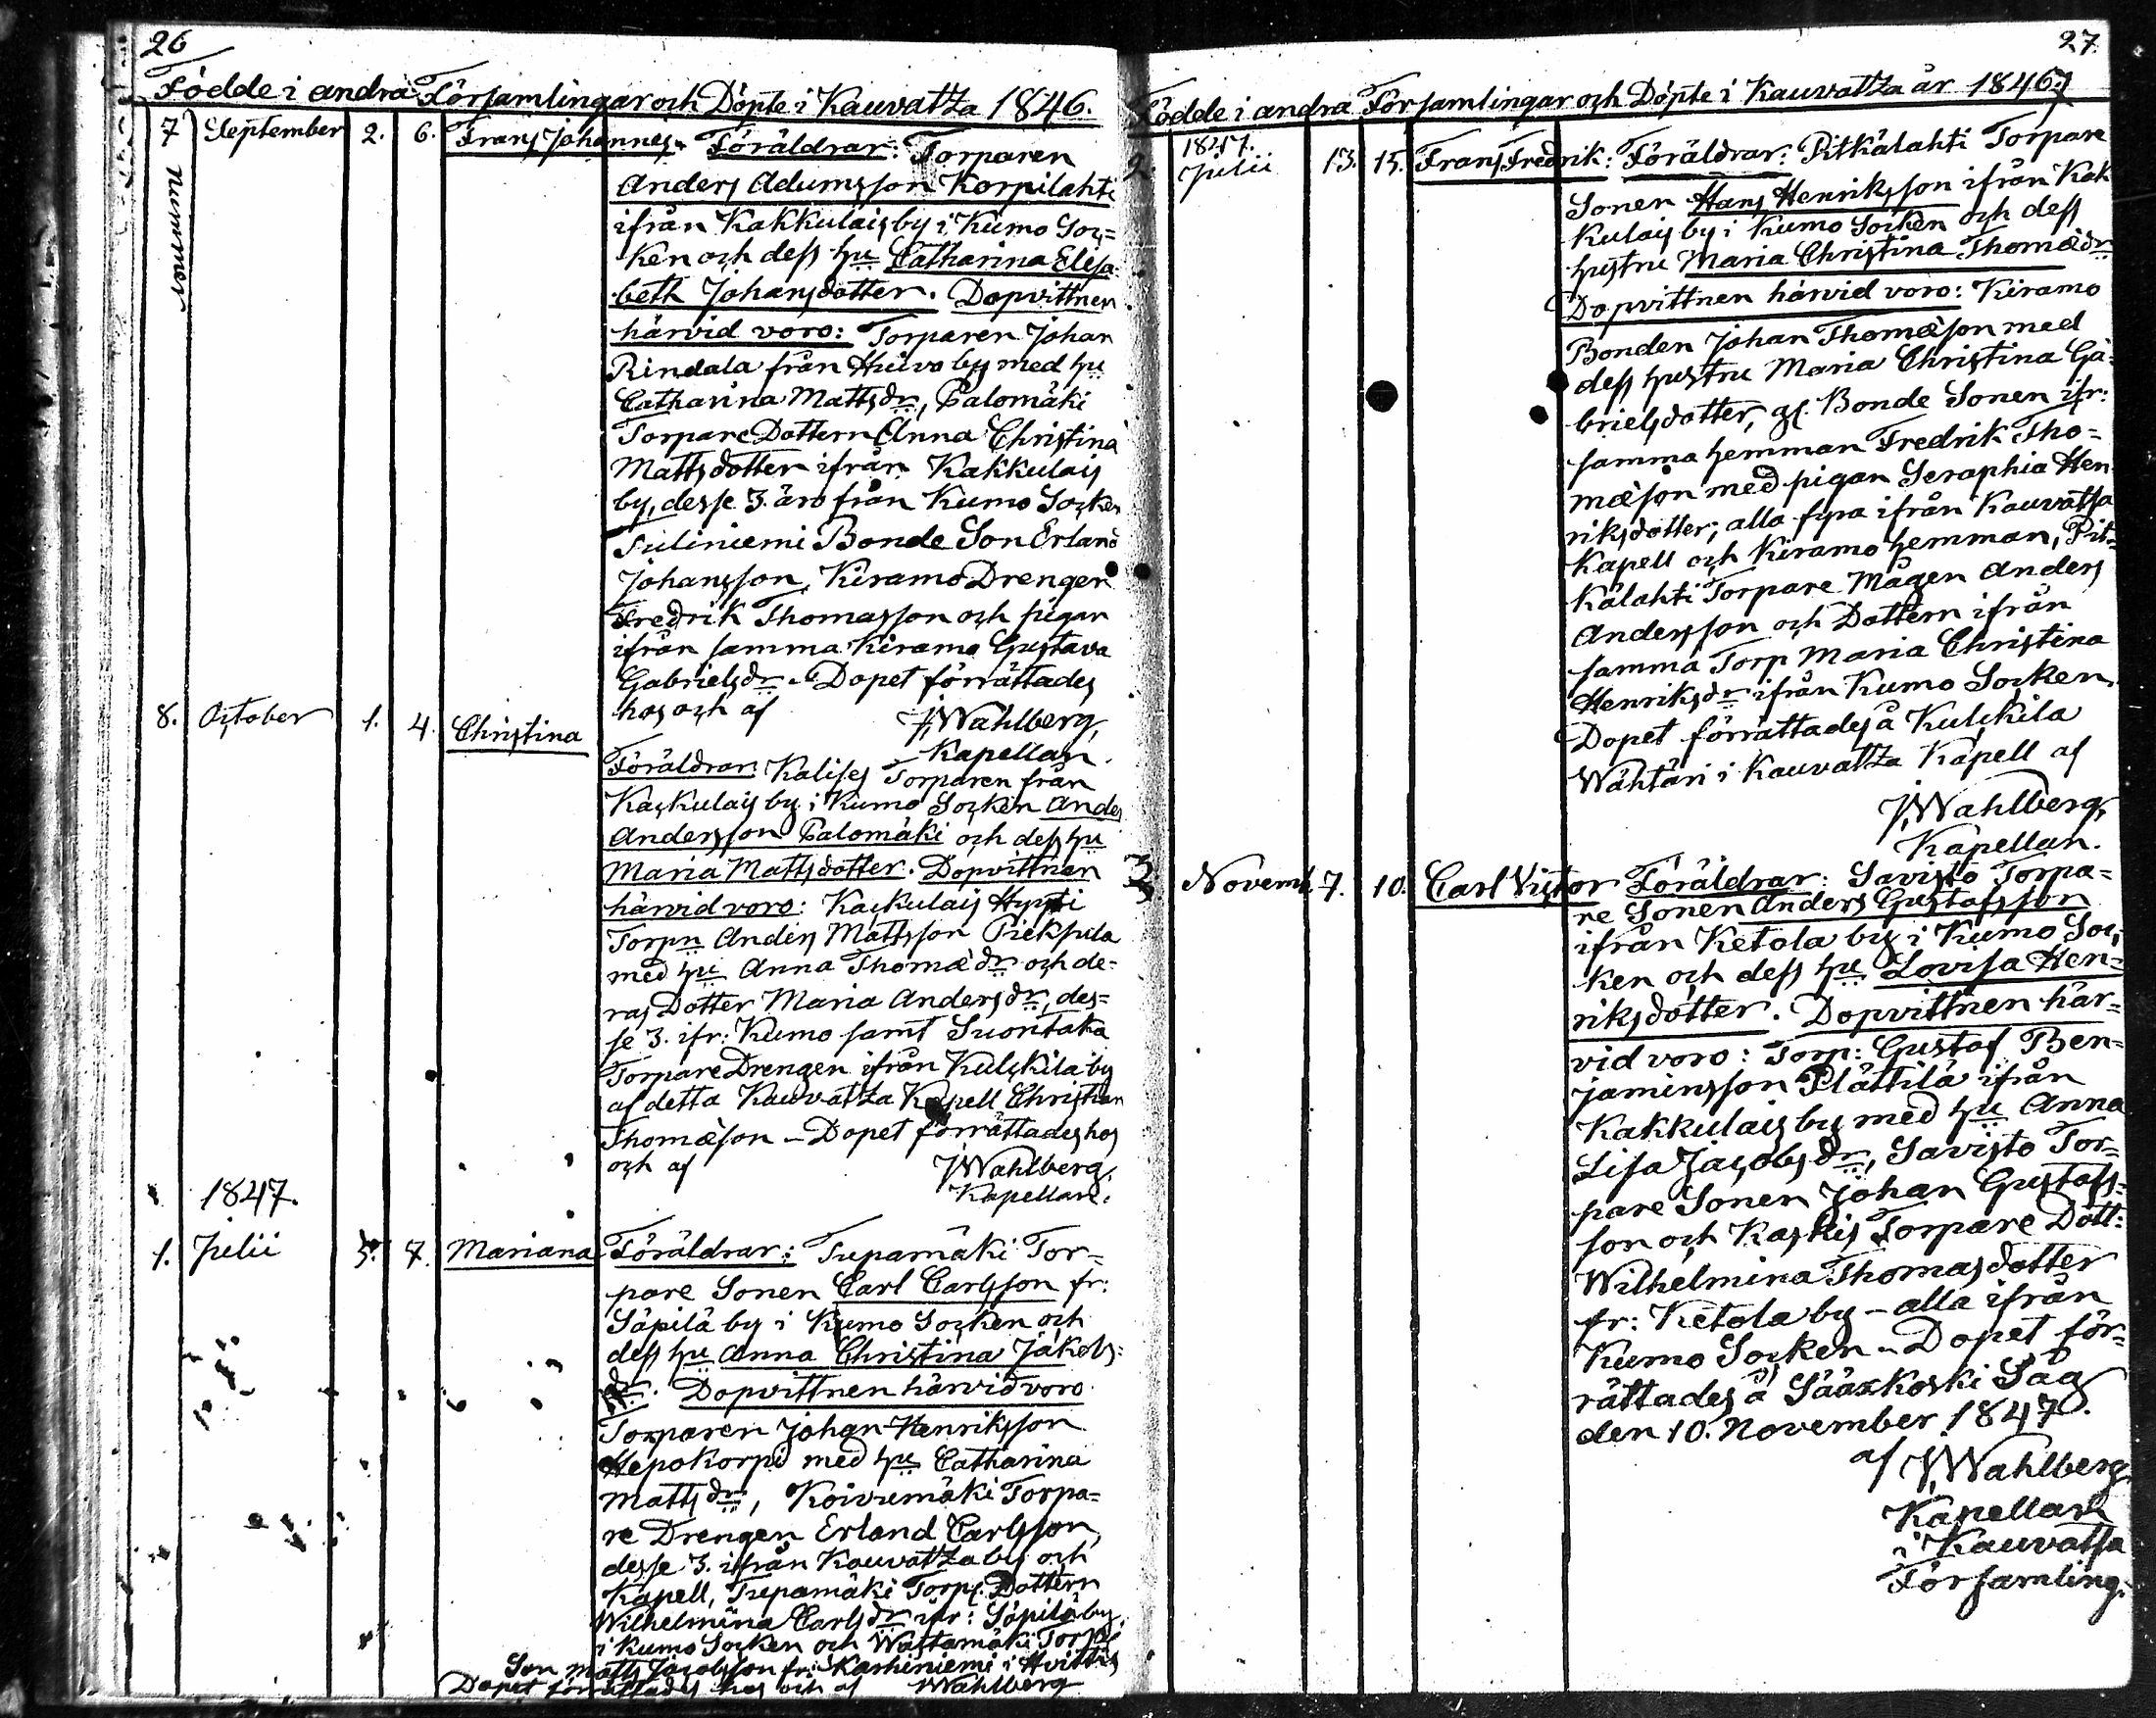 26
Födde i andra Församlingar och Döpte i Kauvatza 1846.
7 September 2. 6. Frans Johannes. Föräldrar: Torparen
Nummer
Anders Adamsson Korpilahti
ifrån Kakkulais by i Kumo Soc=
ken och dess hu Catharina Elisa=
beth Johansdotter. Dopvittnen
härvid voro: Torparen Johan
Rindala från Huivo by med hu
Catharina Mattsdr, Palomäki
Torpare Dottern Anna Christina
Mattsdotter ifrån Kakkulais
by, desse 3. äro från Kumo Socken
Tuliniemi Bonde Son Erland
Johansson, Kiramo Drengen
Fredrik Thomasson och pigan
ifrån samma Kiramo Gustava
Gabrielsdr - Dopet förrättades
hos och af J. Wahlberg,
Kapellan.
8. October 1. 4. Christina
Föräldrar: Kalises Torparen från
Kackulais by i Kumo Socken Anders
Andersson Palomäki och dess hu
Maria Mattsdotter. Dopvittnen
härvid voro: Kackulais Hyppi
Torpn Anders Mattsson Piekpula
med hu Anna Thomædr och de=
ras Dotter Maria Andersdr, des=
se 3. ifr: Kumo samt Suontaka
Torpare Drengen ifrån Kulckila by
af detta Kauvatza Kapell Christian
Thomæson - Dopet förrättades hos
och af J. Wahlberg,
Kapellan.
1847.
1. Julii 5. 7. Mariana Föräldrar: Tupamäki Tor=
pare Sonen Carl Carlsson fr:
Säpilä by i Kumo Socken och
dess hu Anna Christina Jakobs=
dr. Dopvittnen härvid voro
Torparen Johan Henriksson
Hepokorpi med hu Catharina
Mattsdr, Koivumäki Torpa=
re Drengen Erland Carlsson,
desse 3. ifrån Kauvatza by och
Kapell, Tupamäki Torps Dottern
Wilhelmina Carlsdr ifr: Säpilä by
i Kumo Socken och Wattamäki Torps
Son Matts Jacobsson fr: Karhiniemi i Hvittis
Dopet förrättades hos och af Wahlberg
27.
Födde i andra Församlingar och Döpte i Kauvatza år 1846.7
1847.
2. Julii 13. 15. Frans Fredrik: Föräldrar: Pitkälahti Torpare
Sonen Hans Henriksson ifrån Kak
kulais by i Kumo Socken och dess
hustru Maria Christina Thomædr
Dopvittnen härvid voro: Kiramo
Bonden Johan Thomæson med
dess hustru Maria Christina Ga=
brielsdotter, gl. Bonde Sonen ifr:
samma hemman Fredrik Tho=
mæson med pigan Seraphia Hen
riksdotter, alla fyra ifrån Kauvatsa
Kapell och Kiramo hemman, Pit=
kälahti Torpare Mågen Anders
Andersson och Dottern ifrån
samma Torp Maria Christina
Henriksdr ifrån Kumo Socken.
Dopet förrättades å Kulckila
Wähtäri i Kauvatza Kapell af
J. Wahlberg,
Kapellan.
3. Novemb. 7. 10. Carl Victor Föräldrar: Savisto Torpa=
re Sonen Anders Gustafsson
ifrån Ketola by i Kumo Soc=
ken och dess hu Lovisa Hen=
riksdotter. Dopvittnen här=
vid voro: Torp: Gustaf Ben=
jaminsson Plättilä ifrån
Kakkulais by med hu Anna
Lisa Jacobsdr, Savisto Tor=
pare Sonen Johan Gustafs=
son och Kaskis Torpare Dott:
Wilhelmina Thomasdotter
fr: Ketola by - alla ifrån
Kumo Socken - Dopet för=
rättades å Sääxkoski Såg
den 10. November 1847.
af J. Wahlberg
Kapellan
i Kauvatsa
Församling.